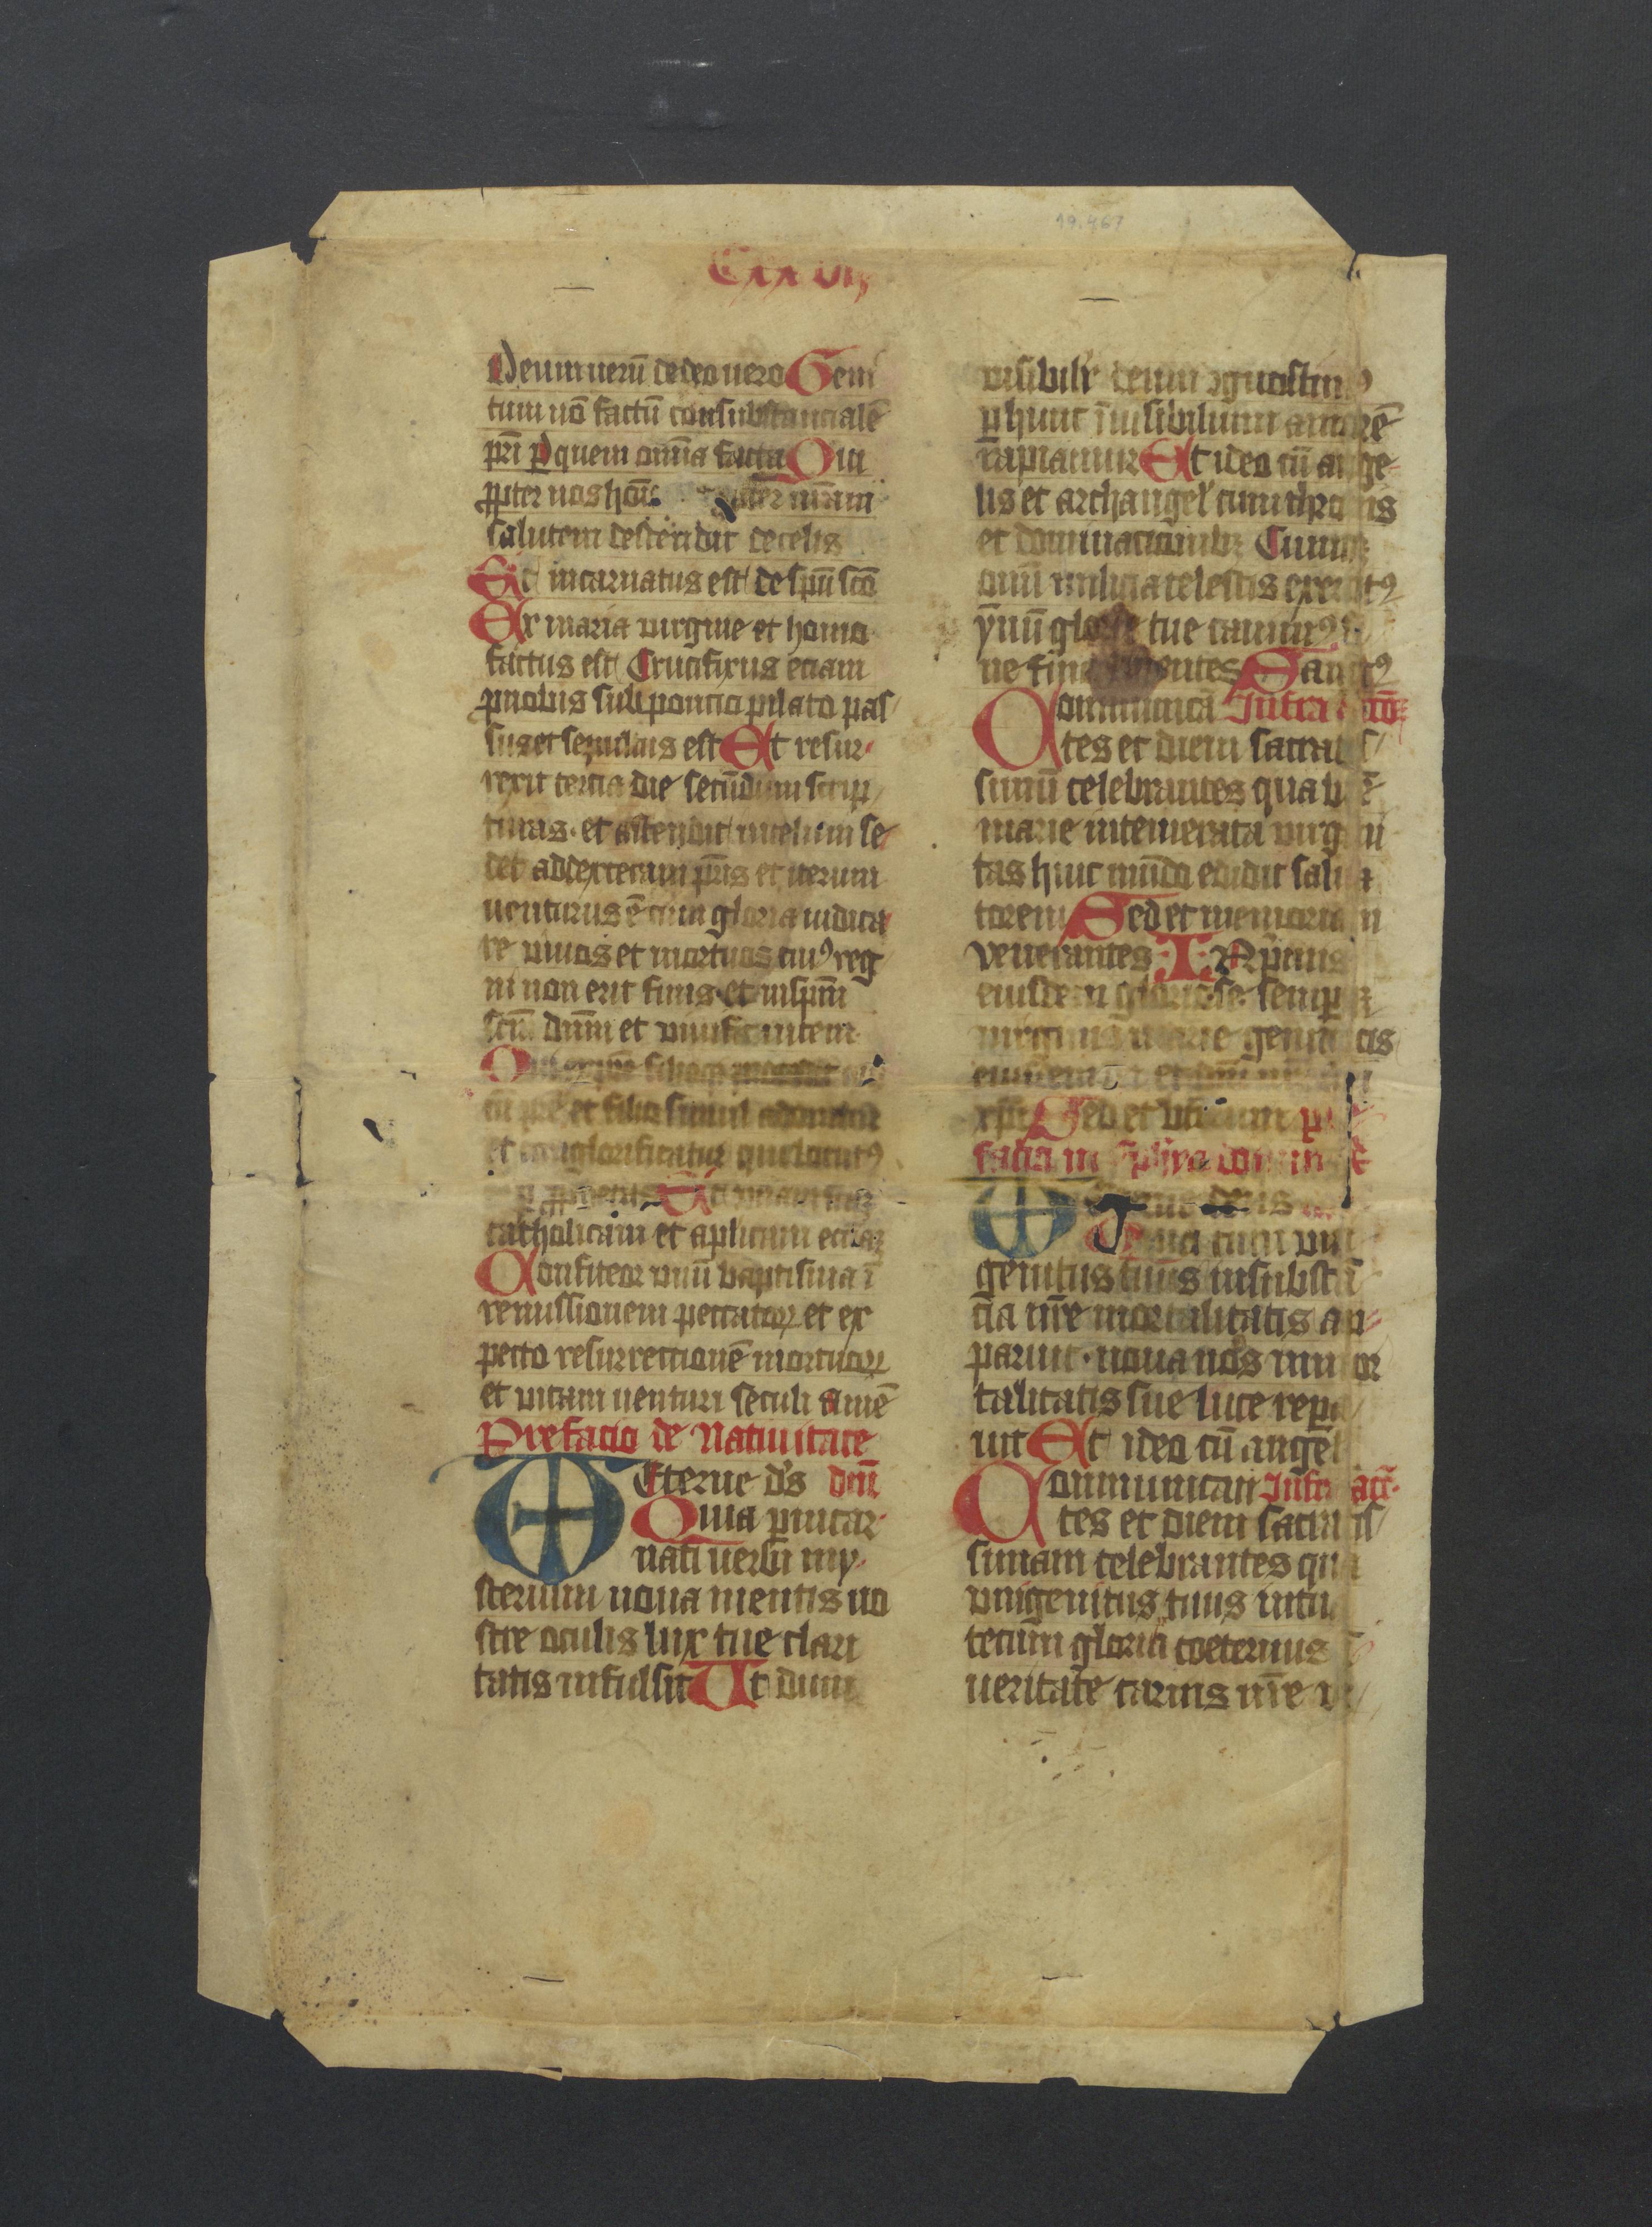 19.467
Cxxviij
Deum uerū de deo uero Geni
tum nō factū consubstancialē
pr̄i p quem om̄ia facta Qui
ꝓpter nos hoīēs nr̄am
salutem descendit de celis
Et incarnatus est de spū scō
Ex maria virgine et homo
factus est Crucifixus eciam
ꝓ nobis sub poncio pilato pas
sus et sepultus est Et resur
rexit tercia die secūdum scrip
turas· et ascendit in celum se
det ad dexteram pr̄is et iterum
uenturus ē cum gloria iudica
re viuos et mortuos cuiꝰ reg
ni non erit finis· et in spm̄
scm̄ dnm̄ et viuificantem
Qui ex pr̄e filioqꝫ procedit
cū pr̄e et filio simul adoratur
et conglorificatur qui locutꝰ
ꝓphetas Et vnam scāꝫ
catholicam et aplicam eccłaꝫ
Confiteor vnū baptisma ī
remissionem peccatoꝝ et ex
pecto resurrectionē mortuoꝝ
et vitam uenturi seculi amē
Prefacio de Natiuitate
Eterne ds̄ dnī
Quia p incar
nati uerbi my
sterium noua mentis no
stre oculis lux tue clari
tatis infulsit Ut dum
visibilr̄ deum ꝯgnoscimꝰ
p hunc īuisibilium amorē
rapiamur Et ideo cū ange
lis et archangel' cum thronis
et dominacionibꝫ Cumqꝫ
omī milicia celestis exercitꝰ
ymū glorie tue canimꝰ si
ne fine dicentes Sanctꝰ
Communica Infra
tes et diem sacratis
simū celebrantes qua bē
marie intemerata virgīī
tas huic mūdo edidit salua
torem Sed et memoriam
venerantes· In pmis
eiusdem gloriose semper
virginis marie genitricis
eiusdem
xpi Sed et
faciā in
Eterne deus
Quia cum vni
genitus tuus in substā
cia nr̄e mortalitatis ap
paruit· noua nos inmor
talitatis sue luce repa
uit Et ideo cū angel
Communican Infra acc̄
tes et diem sacratis
simam celebrantes quo
vnigenitus tuus in tua
tecum gloria coeternus ī
ueritate carnis nr̄e vi